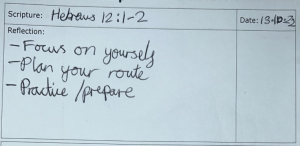 Scripture: Hebrews 12:1-2
Date: 13-10-23
Reflection:
- Focus on yourself
- Plan your route
- Practice / prepare